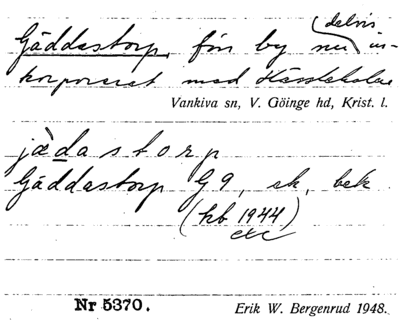 delvis
Gäddastorp, förr by nu in-
korporerat med Hässleholm
Vankiva sn, V. Göinge hd, Krist. l.
jàdastorp
Gäddastorp G9, ek, bek
(kb 1944)
etc
Nr 5370.
Erik W. Bergenrud 1948.